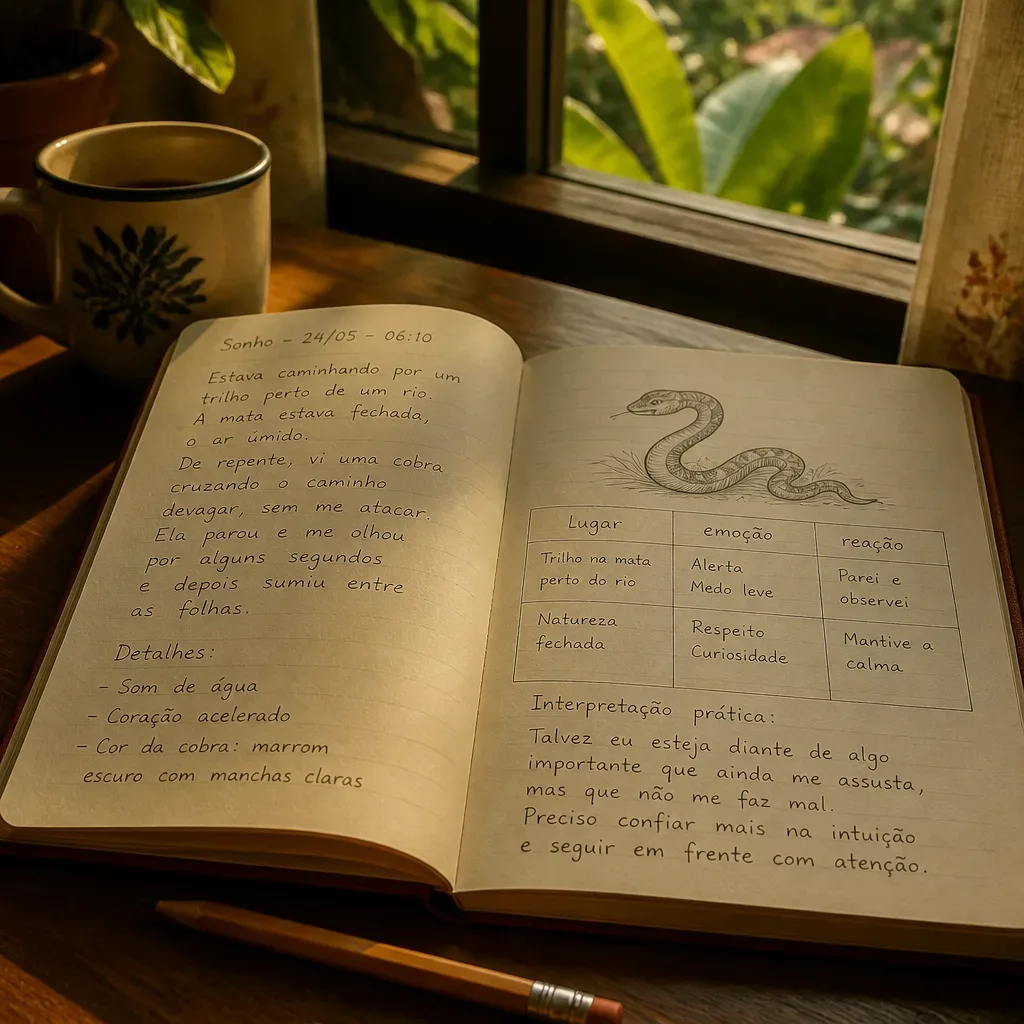 Sonho – 24/05 – 06:10
Estava caminhando por um
trilho perto de um rio.
A mata estava fechada,
o ar úmido.
De repente, vi uma cobra
cruzando o caminho
devagar, sem me atacar.
Ela parou e me olhou
por alguns segundos
e depois sumiu entre
as folhas.
Detalhes:
– Som de água
– Coração acelerado
– Cor da cobra: marrom
escuro com manchas claras
Lugar
emoção
reação
Trilho na mata
perto do rio
Alerta
Medo leve
Parei e
observei
Natureza
fechada
Respeito
Curiosidade
Mantive a
calma
Interpretação prática:
Talvez eu esteja diante de algo
importante que ainda me assusta,
mas que não me faz mal.
Preciso confiar mais na intuição
e seguir em frente com atenção.